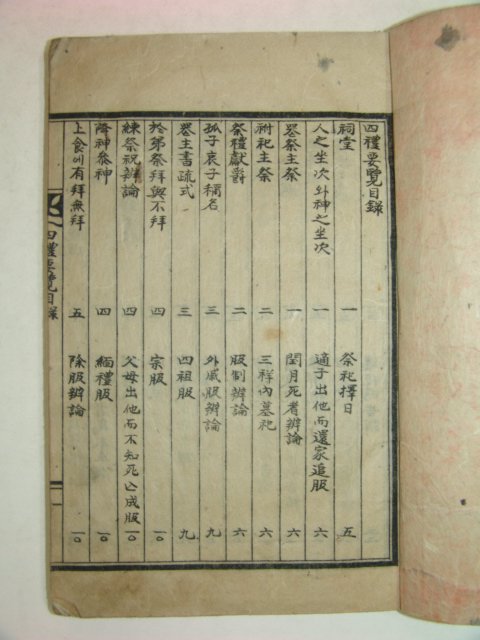 四禮要覽目錄
祠堂 一 祭祀擇日 五
人之坐次와神之坐次 一 適子出他而還家追服 六
喪祭主祭 一 閏月死者辨論 六
祔祀主祭 二 三祥內墓祀 六
祭禮獻爵 二 服制辨論 六
孤子哀子稱名 三 外戚服辨論 九
喪主書疏式 三 四祖服 九
於弟祭拜與不拜 四 宗服 一〇
練祭祝辨論 四 父母出他而不知死亡成服 一〇
降神參神 四 緬禮服 一〇
上食에有拜無拜 五 除服辨論 一〇
四禮要覽目錄 一